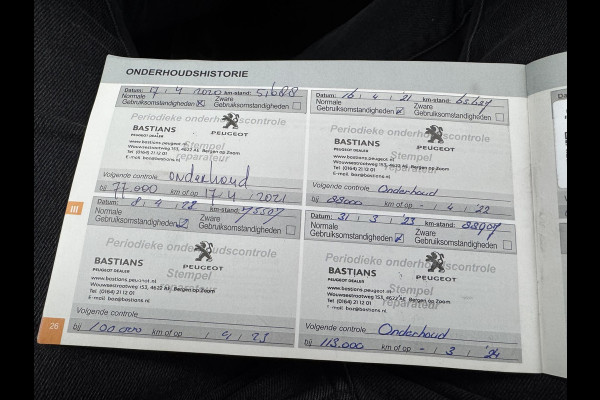 ONDERHOUDSHISTORIE
Datum: 17 / 4 / 2020 km-stand: 51688
Normale Gebruiksomstandigheden
Zware Gebruiksomstandigheden
Periodieke onderhoudscontrole
BASTIANS
PEUGEOT DEALER
PEUGEOT
www.bastians.peugeot.nl
Wouwsestraatweg 153, 4622 AE Bergen op Zoom
Tel: (0164) 21 12 01
E-mail: boz@bastians.nl
Stempel
reparateur
Volgende controle onderhoud
bij 77.000 km of op 17 / 4 / 2021
Datum: 16 / 4 / 21 km-stand:
Normale Gebruiksomstandigheden
Zware Gebruiksomstandigheden
Periodieke onderhoudscontrole
BASTIANS
PEUGEOT DEALER
PEUGEOT
www.bastians.peugeot.nl
Wouwsestraatweg 153, 4622 AE Bergen op Zoom
Tel: (0164) 21 12 01
E-mail: boz@bastians.nl
Stempel
reparateur
Volgende controle Onderhoud
bij km of op - / 4 / '22
Datum: 8 / 4 / 22 km-stand: 75507
Normale Gebruiksomstandigheden
Zware Gebruiksomstandigheden
Periodieke onderhoudscontrole
BASTIANS
PEUGEOT DEALER
PEUGEOT
www.bastians.peugeot.nl
Wouwsestraatweg 153, 4622 AE Bergen op Zoom
Tel: (0164) 21 12 01
E-mail: boz@bastians.nl
Stempel
reparateur
Volgende controle
bij 100.000 km of op / 4 / 23
Datum: 31 / 3 / '23 km-stand: 88907
Normale Gebruiksomstandigheden
Zware Gebruiksomstandigheden
Periodieke onderhoudscontrole
BASTIANS
PEUGEOT DEALER
PEUGEOT
www.bastians.peugeot.nl
Wouwsestraatweg 153, 4622 AE Bergen op Zoom
Tel: (0164) 21 12 01
E-mail: boz@bastians.nl
Stempel
reparateur
Volgende controle Onderhoud
bij 113.000 km of op - / 3 / '24
III
26